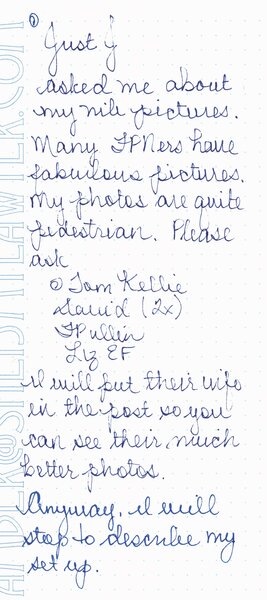 ②
Just J
asked me about
my nib pictures.
Many FPNers have
fabulous pictures.
My photos are quite
pedestrian. Please
ask
Tom Kellie
David (2x)
FPullin
Liz EF
I will put their info
in the post so you
can see their much
better photos.
Anyway, I will
stop to describe my
set up.